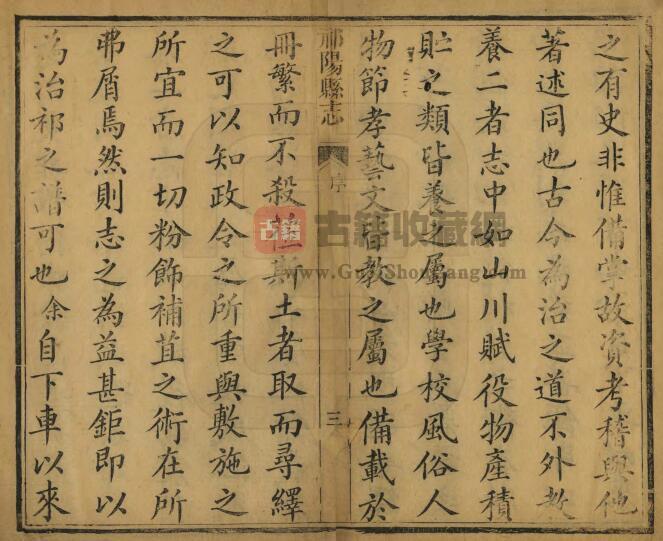 之有史非惟備掌故資考稽與他
著述同也古今為治之道不外教
養二者志中如山川賦役物產積
貯之類皆養之屬也學校風俗人
物節孝藝文皆教之屬也備載於
祁陽縣志
序
三
冊繁而不殺斯土者取而尋繹
之可以知政令之所重與敷施之
所宜而一切粉飾補苴之術在所
弗屑焉然則志之為益甚鉅即以
為治祁之譜可也余自下車以來
古籍
古籍收藏網
www.GuJiShouCang.com